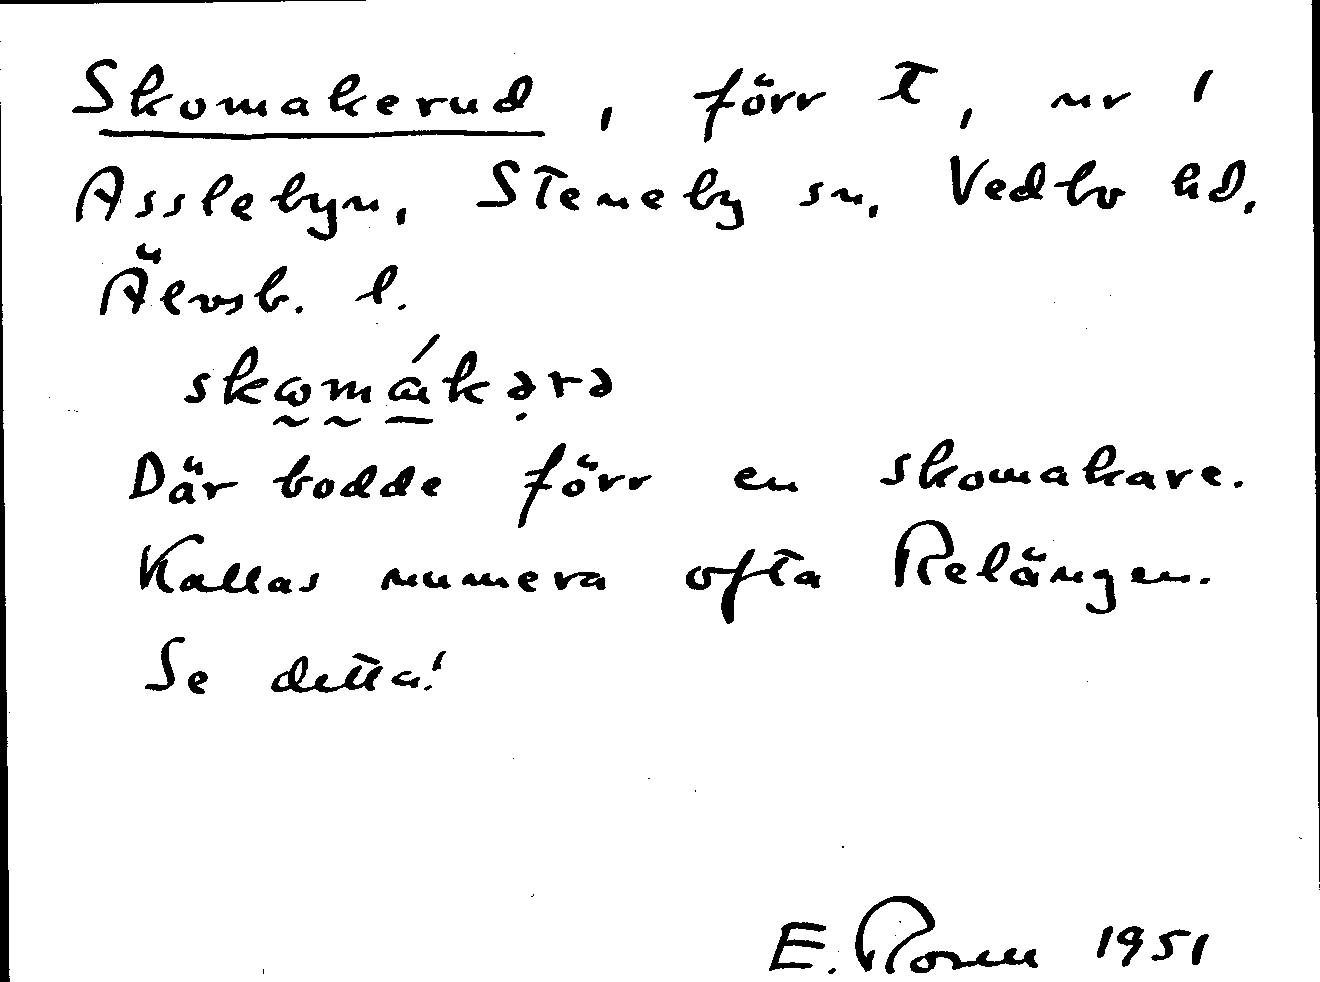 Skomakerud, förr t, nr 1
Asslebyn, Steneby sn, Vedbo hd,
Älvsb. l.
skωmákərə
Där bodde förr en skomakare.
Kallas numera ofta Relängen.
Se detta!
E. Rosell 1951